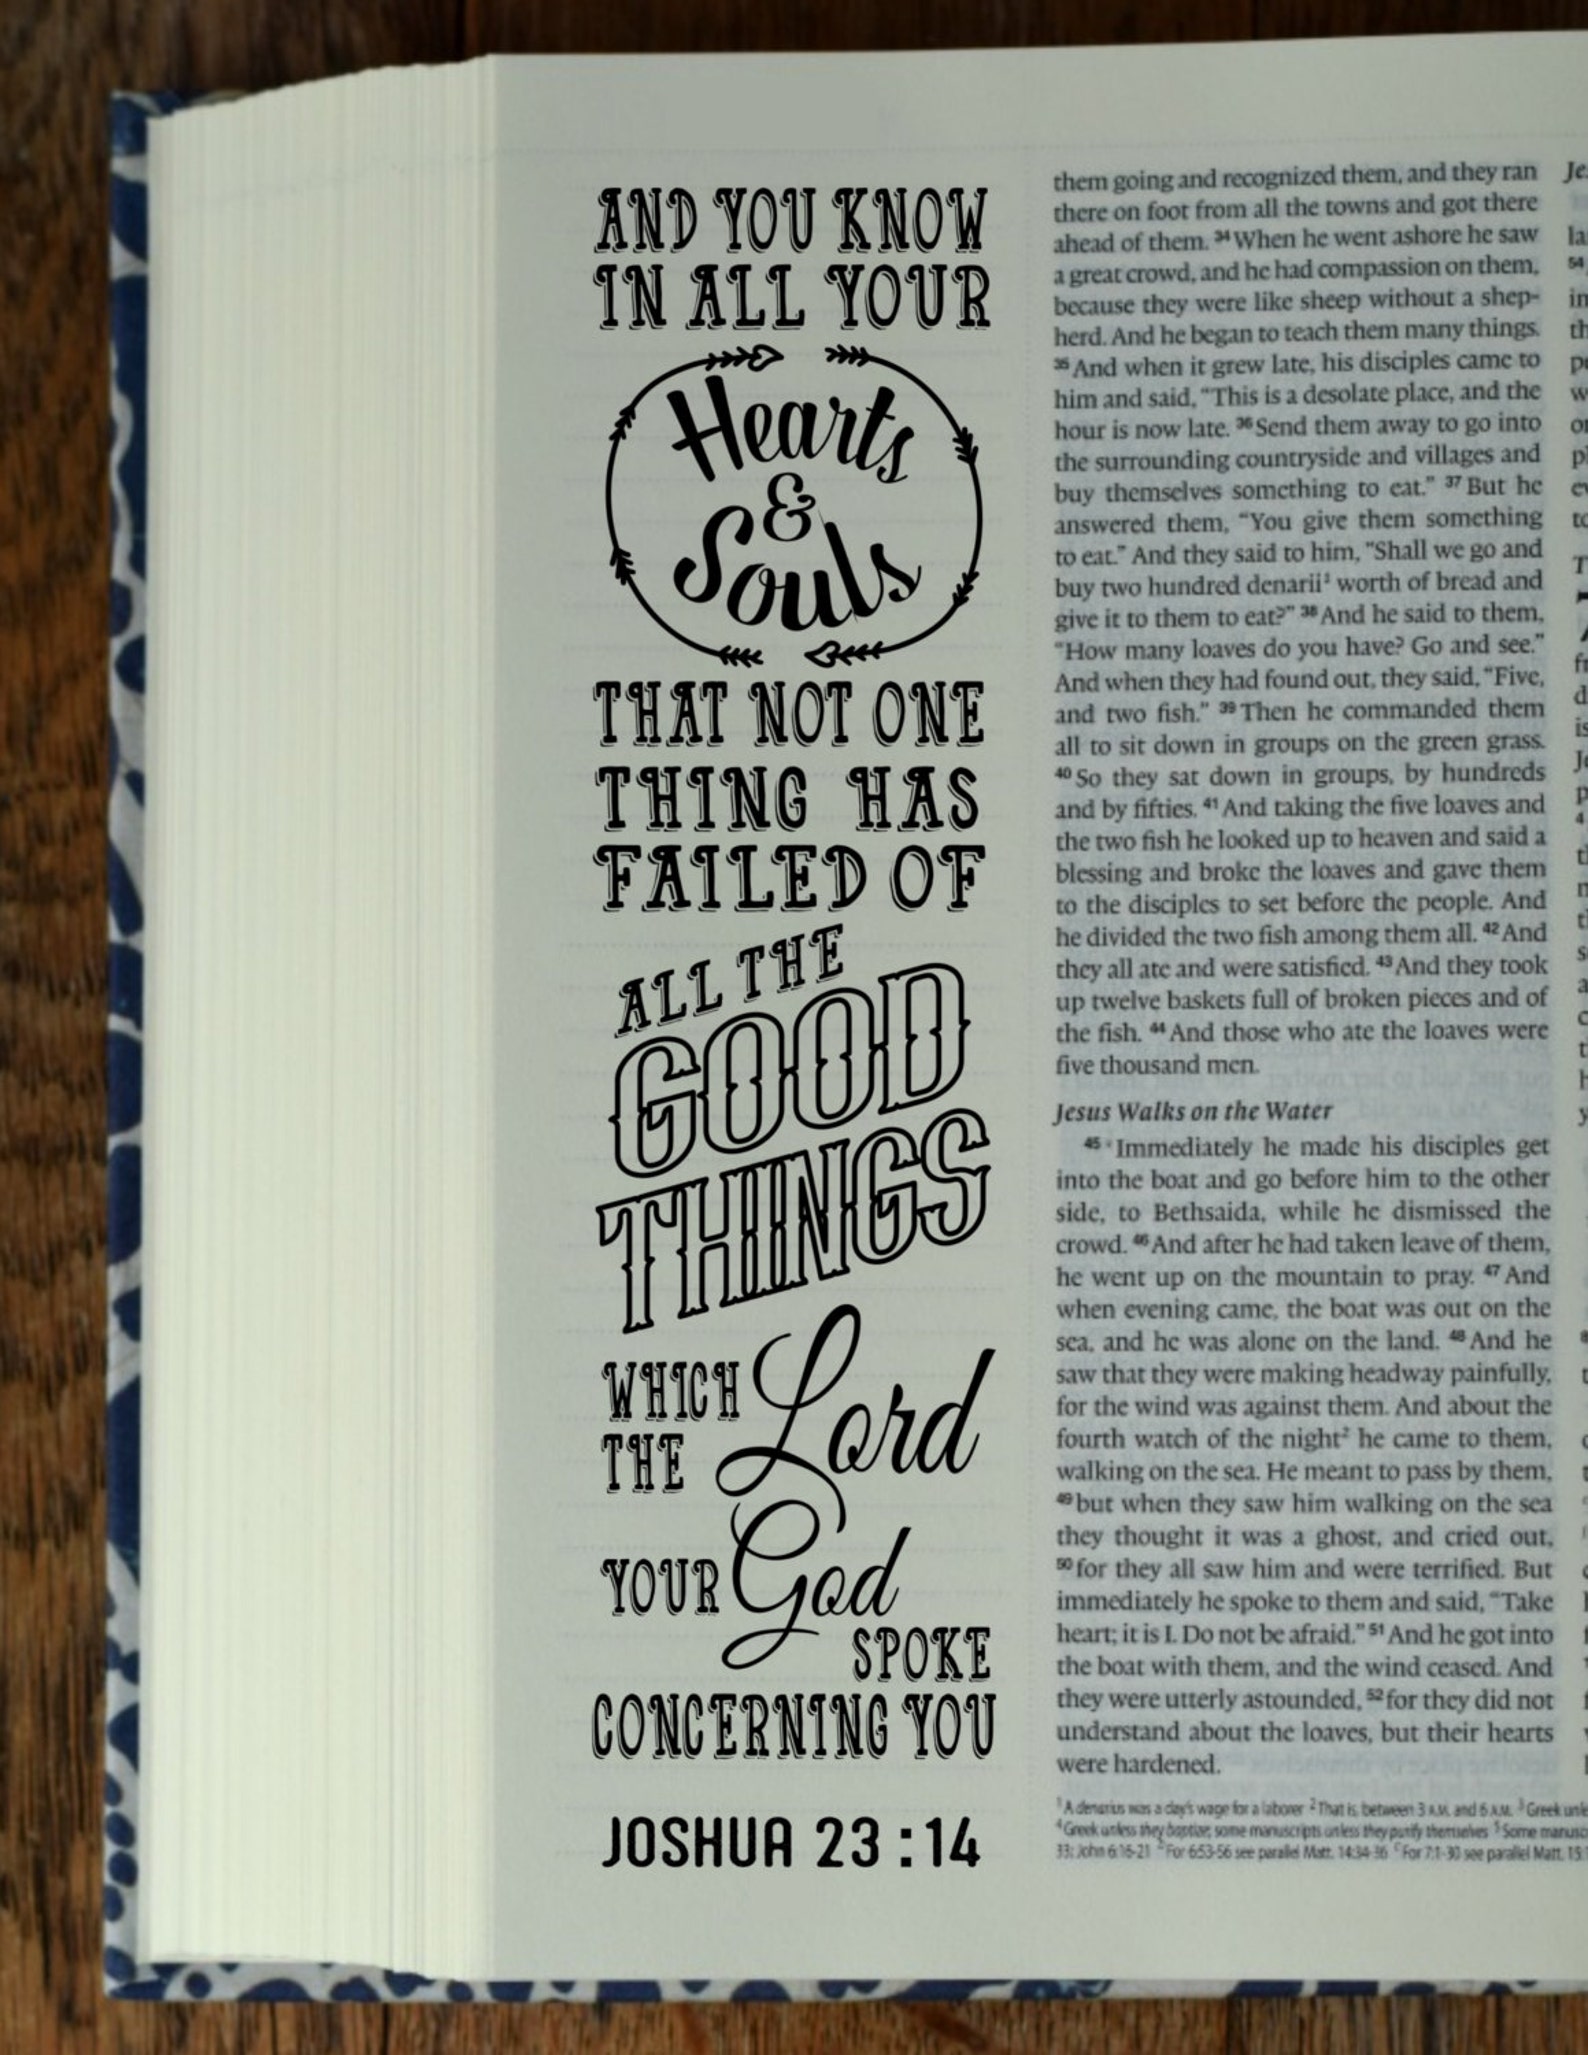 AND YOU KNOW
IN ALL YOUR
Hearts
&
Souls
THAT NOT ONE
THING HAS
FAILED OF
ALL THE
GOOD
THINGS
WHICH
THE Lord
YOUR God
SPOKE
CONCERNING YOU
JOSHUA 23:14
them going and recognized them, and they ran
there on foot from all the towns and got there
ahead of them. 34 When he went ashore he saw
a great crowd, and he had compassion on them,
because they were like sheep without a shep-
herd. And he began to teach them many things.
35 And when it grew late, his disciples came to
him and said, "This is a desolate place, and the
hour is now late. 36 Send them away to go into
the surrounding countryside and villages and
buy themselves something to eat." 37 But he
answered them, "You give them something
to eat." And they said to him, "Shall we go and
buy two hundred denarii1 worth of bread and
give it to them to eat?" 38 And he said to them,
"How many loaves do you have? Go and see."
And when they had found out, they said, "Five,
and two fish." 39 Then he commanded them
all to sit down in groups on the green grass.
40 So they sat down in groups, by hundreds
and by fifties. 41 And taking the five loaves and
the two fish he looked up to heaven and said a
blessing and broke the loaves and gave them
to the disciples to set before the people. And
he divided the two fish among them all. 42 And
they all ate and were satisfied. 43 And they took
up twelve baskets full of broken pieces and of
the fish. 44 And those who ate the loaves were
five thousand men.
Jesus Walks on the Water
45 Immediately he made his disciples get
into the boat and go before him to the other
side, to Bethsaida, while he dismissed the
crowd. 46 And after he had taken leave of them,
he went up on the mountain to pray. 47 And
when evening came, the boat was out on the
sea, and he was alone on the land. 48 And he
saw that they were making headway painfully,
for the wind was against them. And about the
fourth watch of the night2 he came to them,
walking on the sea. He meant to pass by them,
49 but when they saw him walking on the sea
they thought it was a ghost, and cried out,
50 for they all saw him and were terrified. But
immediately he spoke to them and said, "Take
heart; it is I. Do not be afraid." 51 And he got into
the boat with them, and the wind ceased. And
they were utterly astounded, 52 for they did not
understand about the loaves, but their hearts
were hardened.
1 A denarius was a day's wage for a laborer 2 That is, between 3 A.M. and 6 A.M. 3 Greek
4 Greek unless they baptize; some manuscripts unless they purify themselves 5 Some
33; John 6:16-21 For 6:53-56 see parallel Matt. 14:34-36 For 7:1-30 see parallel Matt.